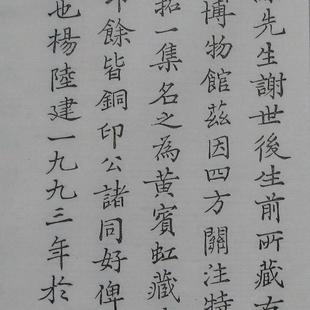 先生謝世後生前所藏
博物館茲因四方關注特
一集名之為黃賓虹藏
餘皆銅印公諸同好俾
也楊陸建一九九三年於